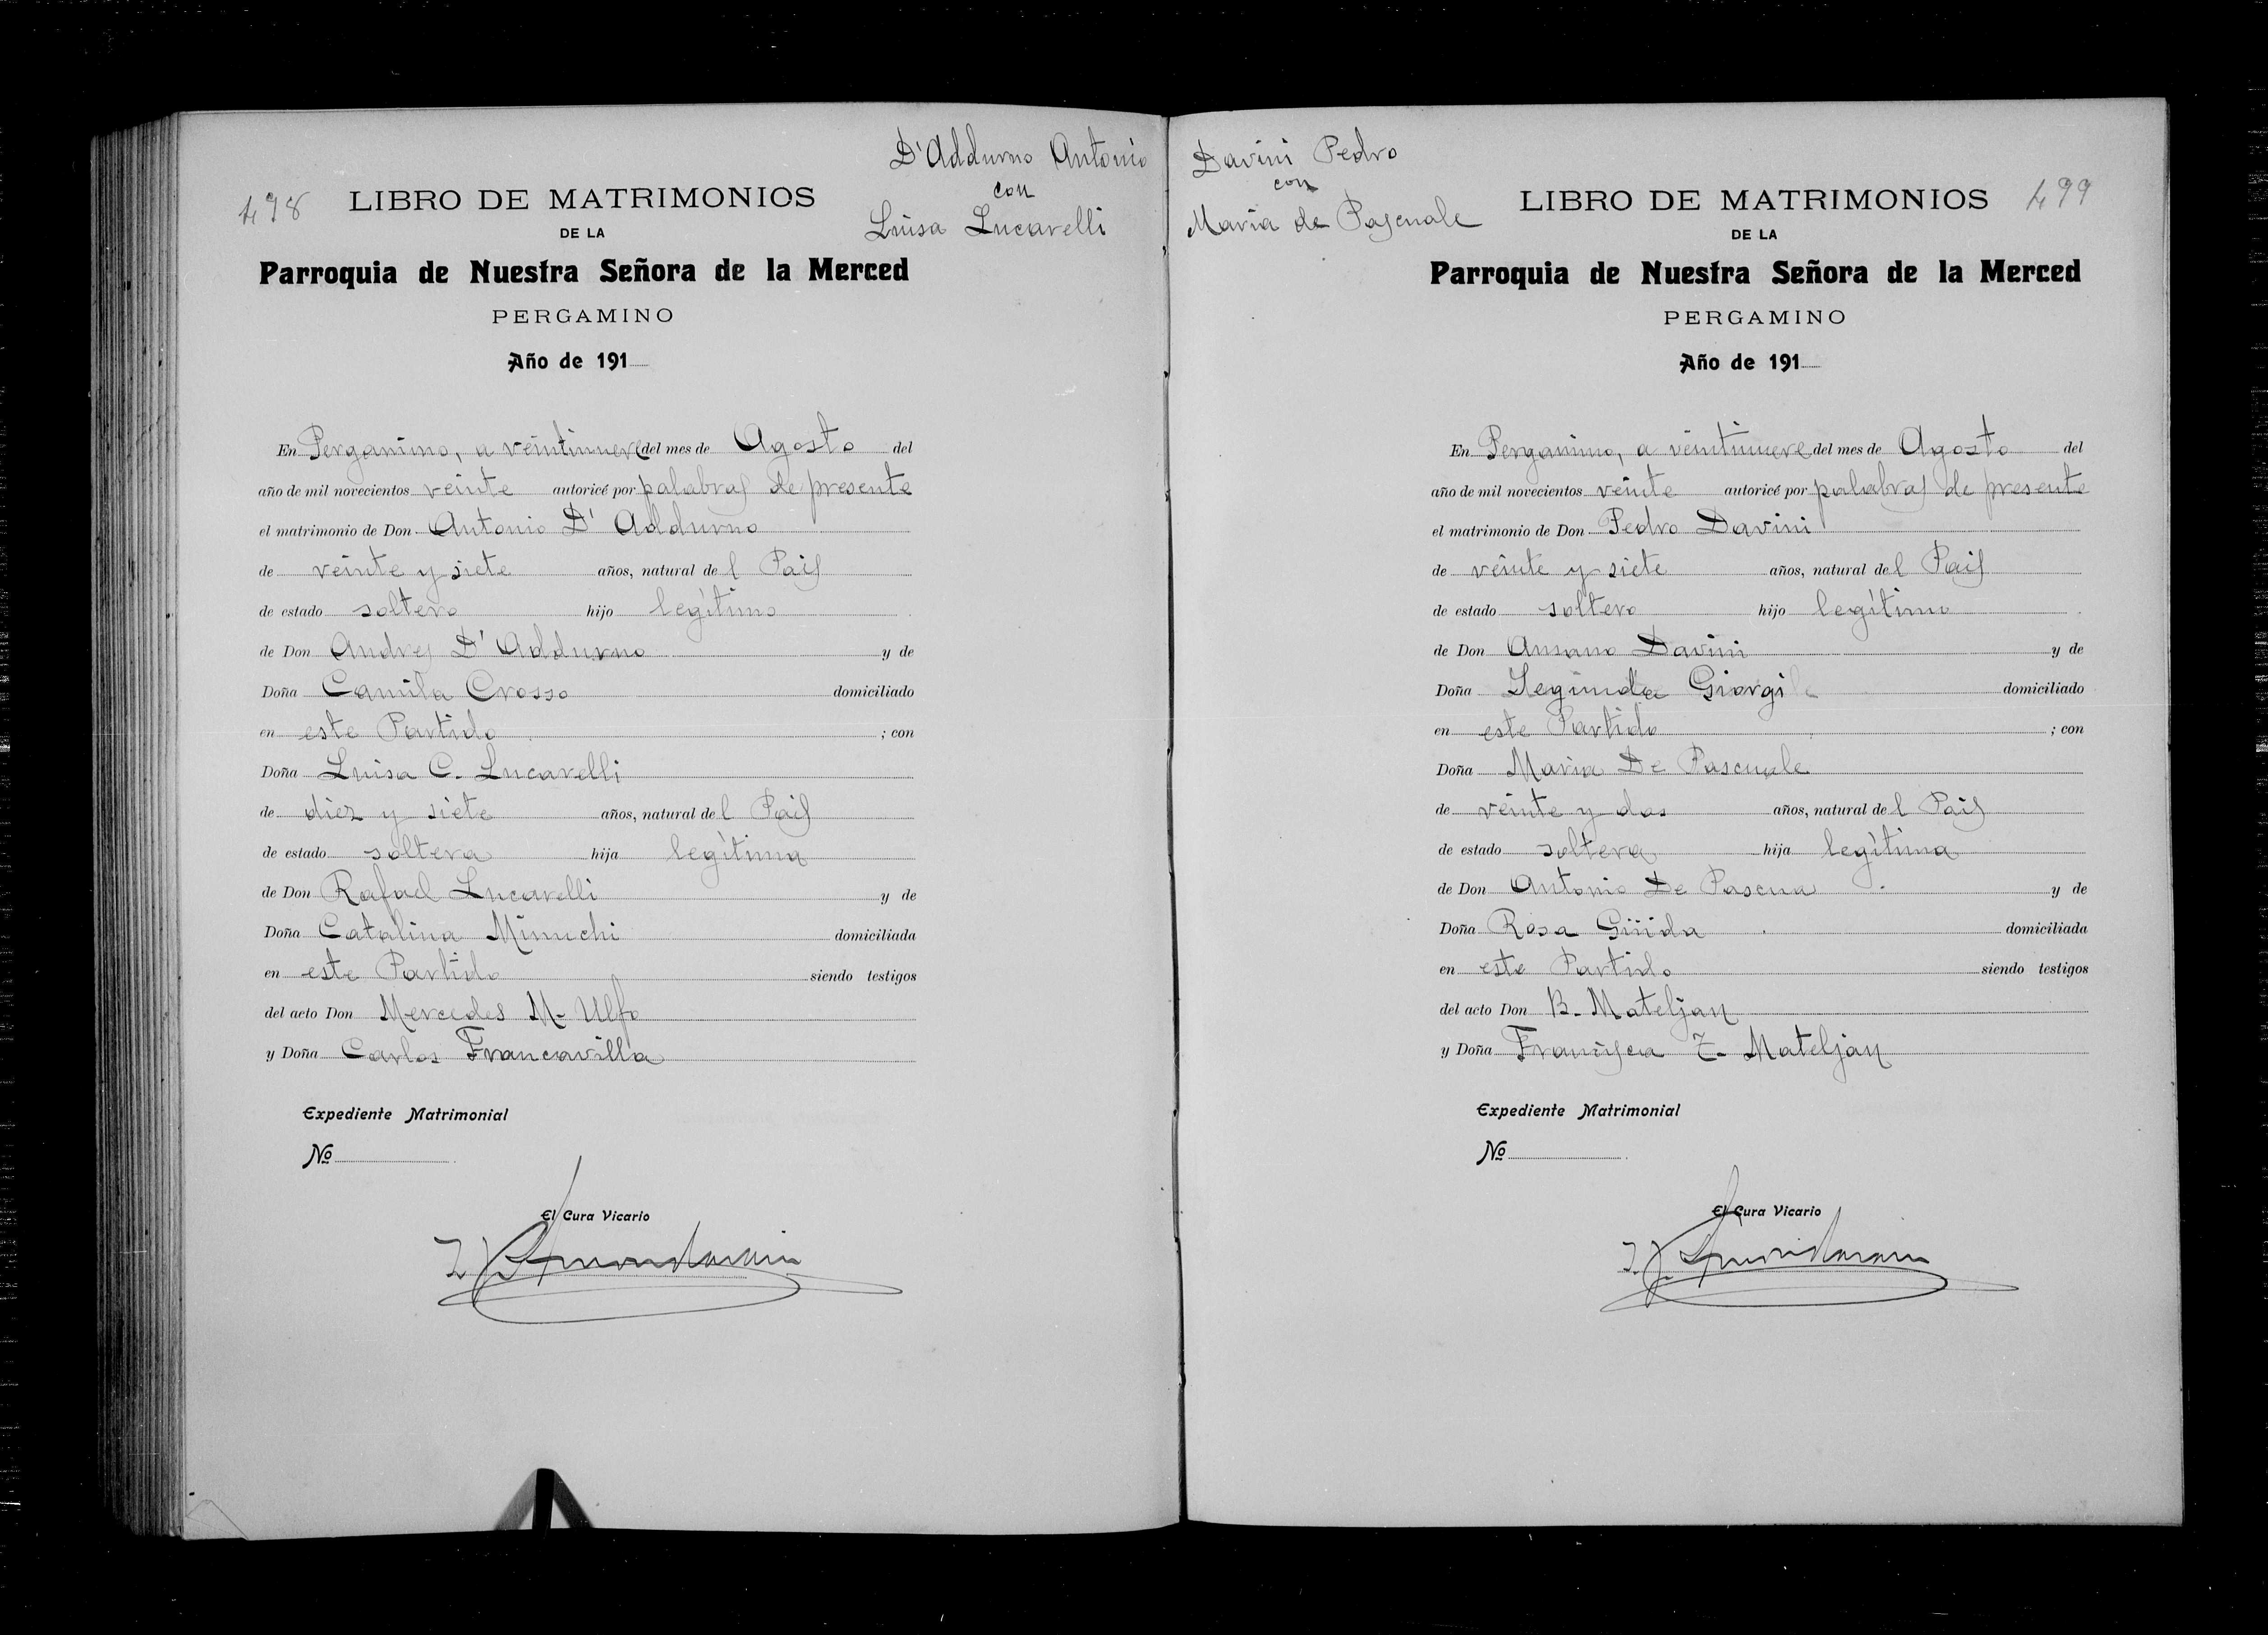 D'Addurno Antonio
con
Luisa Lucarelli
498
LIBRO DE MATRIMONIOS
DE LA
Parroquia de Nuestra Señora de la Merced
PERGAMINO
Año de 191
En Pergamino, a veintinueve del mes de Agosto del
año de mil novecientos veinte autoricé por palabras de presente
el matrimonio de Don Antonio D' Addurno
de veinte y siete años, natural del Pais
de estado soltero hijo legítimo
de Don Andres D' Addurno y de
Doña Camila Crosso domiciliado
en este Partido ; con
Doña Luisa C. Lucarelli
de diez y siete años, natural del Pais
de estado soltera hija legítima
de Don Rafael Lucarelli y de
Doña Catalina Minuchi domiciliada
en este Partido siendo testigos
del acto Don Mercedes M. Ulfo
y Doña Carlos Francavilla
Expediente Matrimonial
Nº
El Cura Vicario
Davini Pedro
con
Maria de Pascuale
499
LIBRO DE MATRIMONIOS
DE LA
Parroquia de Nuestra Señora de la Merced
PERGAMINO
Año de 191
En Pergamino, a veintinueve del mes de Agosto del
año de mil novecientos veinte autoricé por palabras de presente
el matrimonio de Don Pedro Davini
de veinte y siete años, natural del Pais
de estado soltero hijo legítimo
de Don Ansano Davini y de
Doña Segunda Giorgi domiciliado
en este Partido ; con
Doña Maria De Pascuale
de veinte y dos años, natural del Pais
de estado soltera hija legítima
de Don Antonio De Pascua y de
Doña Rosa Güida domiciliada
en este Partido siendo testigos
del acto Don B. Mateljan
y Doña Francisca Z. Mateljan
Expediente Matrimonial
Nº
El Cura Vicario